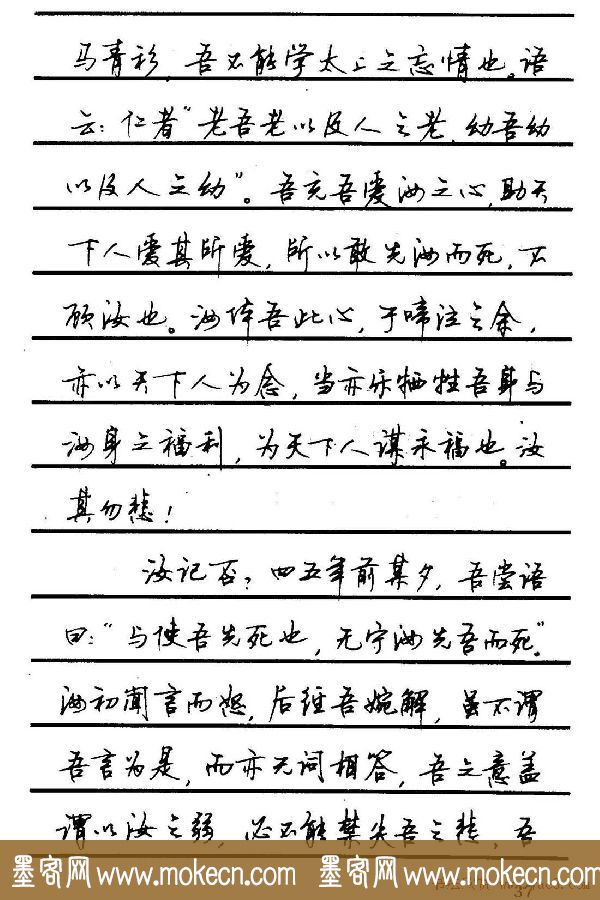 马青衫，吾不能学太上之忘情也。语
云：仁者“老吾老以及人之老，幼吾幼
以及人之幼”。吾充吾爱汝之心，助天
下人爱其所爱，所以敢先汝而死，不
顾汝也。汝体吾此心，于啼泣之余，
亦以天下人为念，当亦乐牺牲吾身与
汝身之福利，为天下人谋永福也。汝
其勿悲！
汝记否？四五年前某夕，吾尝语
曰：“与使吾先死也，无宁汝先吾而死。”
汝初闻言而怒，后经吾婉解，虽不谓
吾言为是，而亦无词相答，吾之意盖
谓以汝之弱，必不能禁失吾之悲，吾
墨客网 www.mokecn.com 墨客网 www.mokecn.com